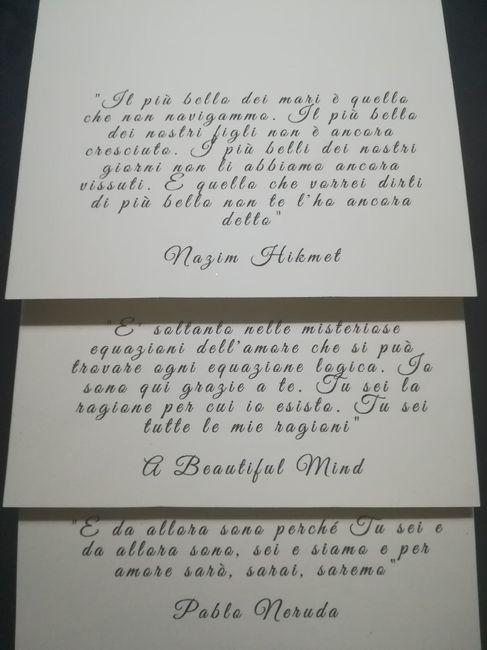 "Il più bello dei mari è quello
che non navigammo. Il più bello
dei nostri figli non è ancora
cresciuto. I più belli dei nostri
giorni non li abbiamo ancora
vissuti. E quello che vorrei dirti
di più bello non te l'ho ancora
detto"
Nazim Hikmet
"E' soltanto nelle misteriose
equazioni dell'amore che si può
trovare ogni equazione logica. Io
sono qui grazie a te. Tu sei la
ragione per cui io esisto. Tu sei
tutte le mie ragioni"
A Beautiful Mind
"E da allora sono perché Tu sei e
da allora sono, sei e siamo e per
amore sarò, sarai, saremo"
Pablo Neruda